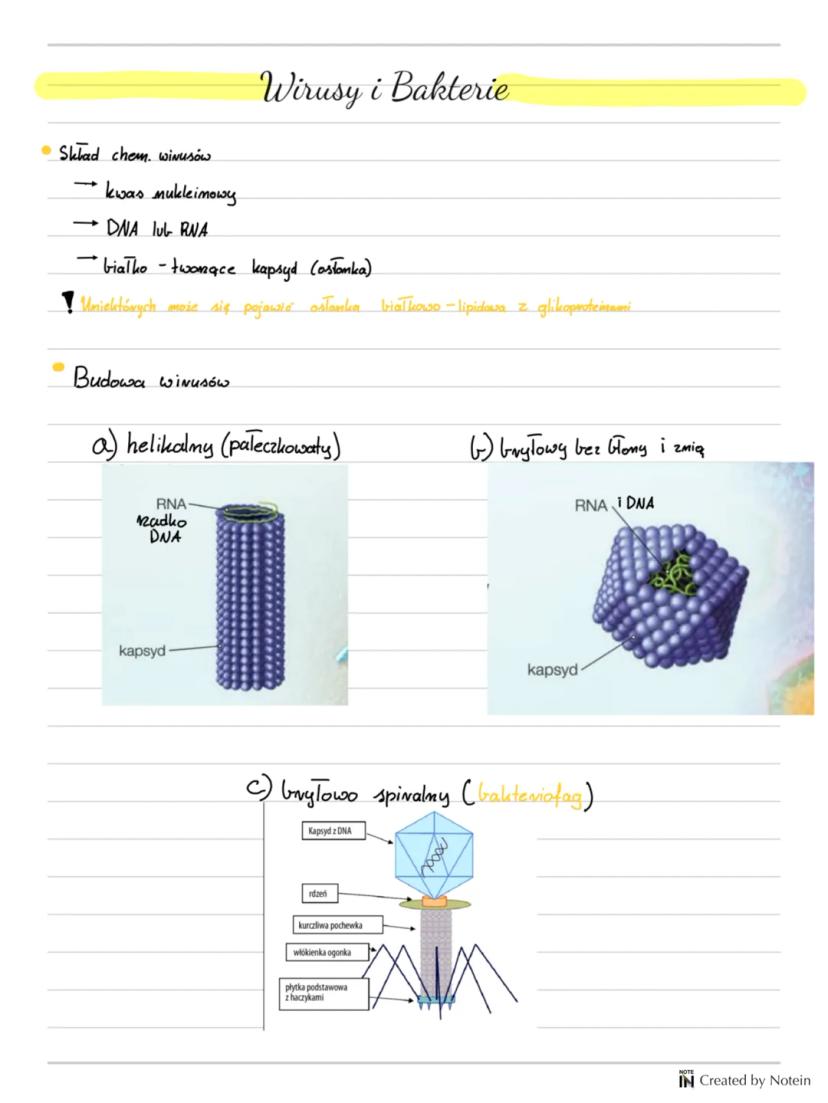 Wirusy i Bakterie
Skład chem. wirusów
→ kwas nukleinowy
→ DNA lub RNA
→ białko - tworzące kapsyd (osłonka)
! Uniektórych może się pojawić osłonka białkowo-lipidowa z glikoproteinami
Budowa wirusów
a) helikalny (pałeczkowaty)
b) bryłowy bez błony i z nią
RNA
rzadko
DNA
kapsyd
RNA i DNA
kapsyd
c) bryłowo spiralny (bakteriofag)
Kapsyd z DNA
rdzeń
kurczliwa pochewka
włókienka ogonka
płytka podstawowa
z haczykami
NOTE IN Created by Notein